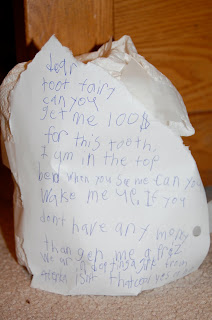 dear
toot fairy
can you
get me 100$
for this tooth
I am in the top
bed when you see me can you
wake me up If you
dont have any money
than get me a
We ar
isnt that